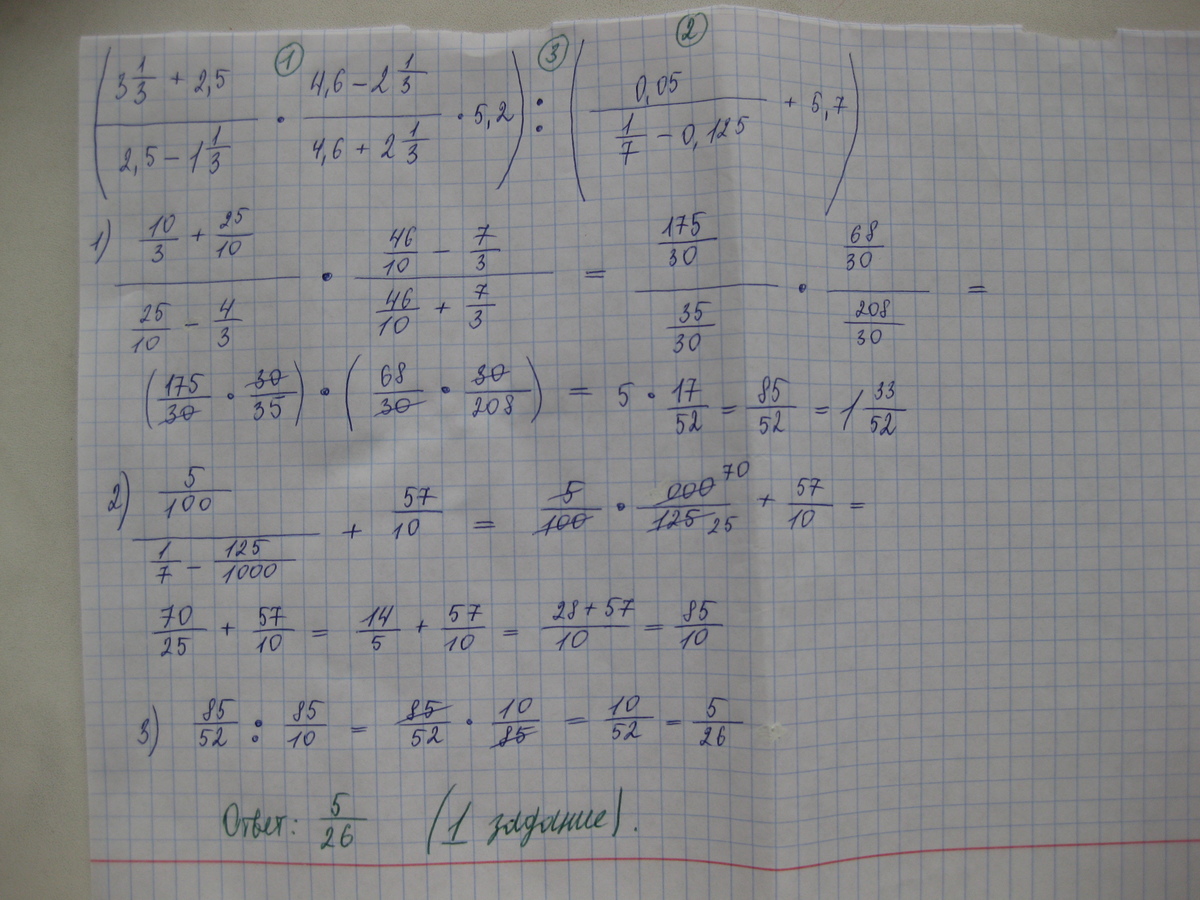 ① ③ ②
(3 1/3 + 2,5)/(2,5 − 1 1/3) · (4,6 − 2 1/3)/(4,6 + 2 1/3) · 5,2) : (0,05/(1/7 − 0,125) + 5,7)
1) (10/3 + 25/10)/(25/10 − 4/3) · (46/10 − 7/3)/(46/10 + 7/3) = (175/30)/(35/30) · (68/30)/(208/30) =
(175/30 · 30/35) · (68/30 · 30/208) = 5 · 17/52 = 85/52 = 1 33/52
2) (5/100)/(1/7 − 125/1000) + 57/10 = 5/100 · 000 70/125 25 + 57/10 =
70/25 + 57/10 = 14/5 + 57/10 = (28+57)/10 = 85/10
3) 85/52 : 85/10 = 85/52 · 10/85 = 10/52 = 5/26
Ответ: 5/26 (1 задание).